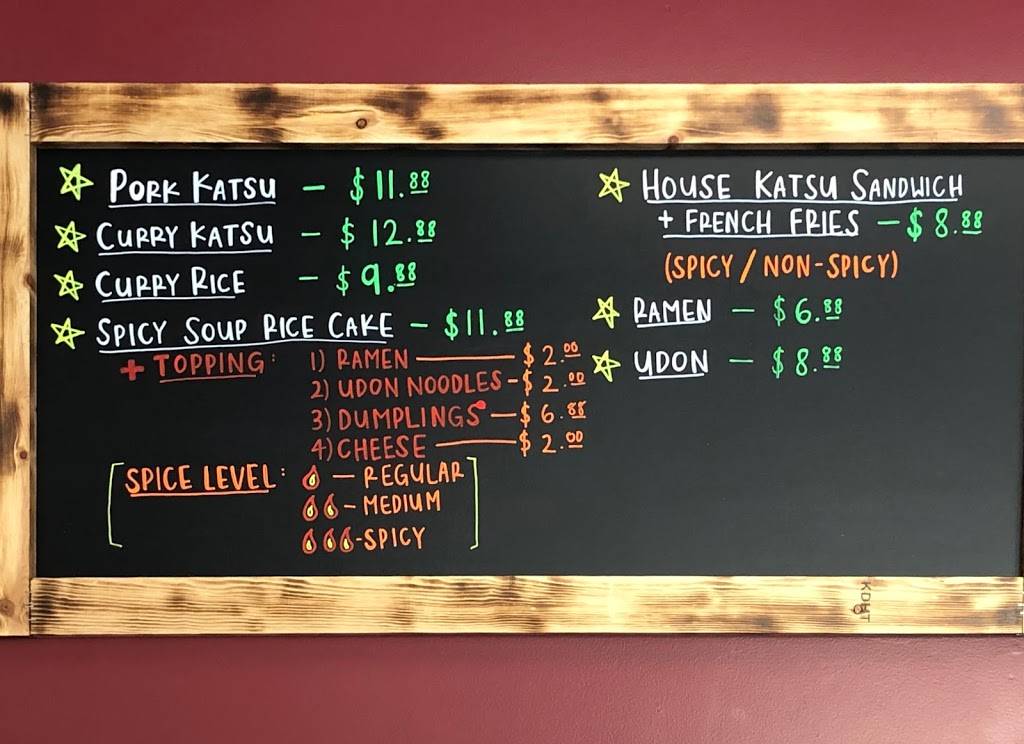 PORK KATSU - $11.88
CURRY KATSU - $12.88
CURRY RICE - $9.88
SPICY SOUP RICE CAKE - $11.88
+ TOPPING: 1) RAMEN - $2.00
2) UDON NOODLES - $2.00
3) DUMPLINGS - $6.88
4) CHEESE - $2.00
SPICE LEVEL: - REGULAR
- MEDIUM
- SPICY
HOUSE KATSU SANDWICH
+ FRENCH FRIES - $8.88
(SPICY / NON-SPICY)
RAMEN - $6.88
UDON - $8.88